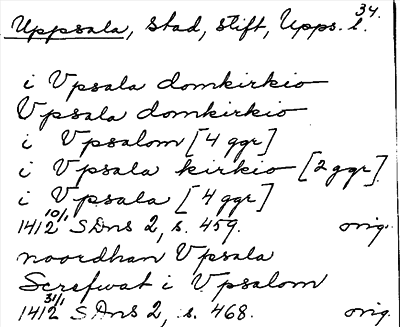 34.
Uppsala, stad, stift, Upps. l.
i Vpsala domkirkio
Vpsala domkirkio
i Vpsalom [4 ggr]
i Vpsala kirkio [2 ggr]
i Vpsala [4 ggr]
1412 10/1 SDns 2, s. 459. orig.
noordhan Vpsala
Screfwat i Vpsalom
1412 31/1 SDns 2, s. 468. orig.